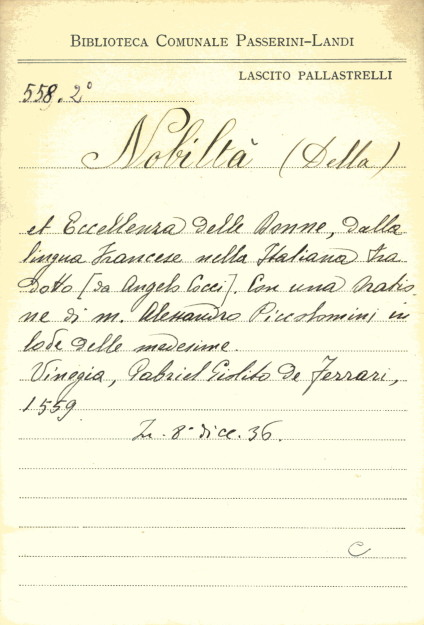 BIBLIOTECA COMUNALE PASSERINI-LANDI
LASCITO PALLASTRELLI
558. 2º
Nobiltà (Della)
et Eccellenza delle Donne, dalla
lingua Francese nella Italiana tra
dotto [da Angelo Cocci]. Con una oratio-
ne di m. Alessandro Piccolomini in
lode delle medesime.
Vinegia, Gabriel Giolito De Ferrari,
1559
in 8º dicc. 36.
C